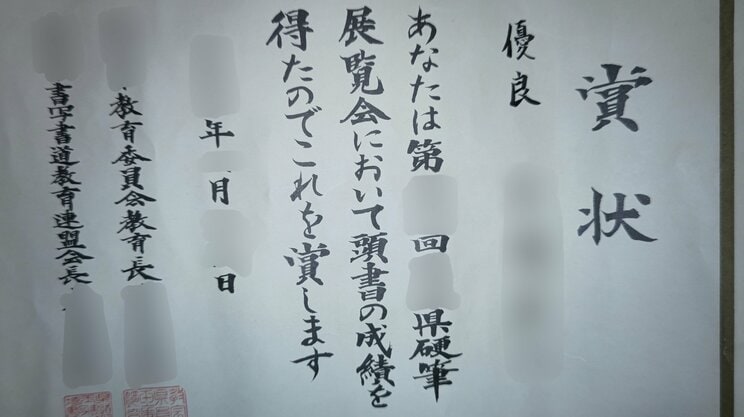 賞状
優良
あなたは第 回 県硬筆
展覧会において頭書の成績を
得たのでこれを賞します
年 月 日
教育委員会教育長
書写書道教育連盟会長